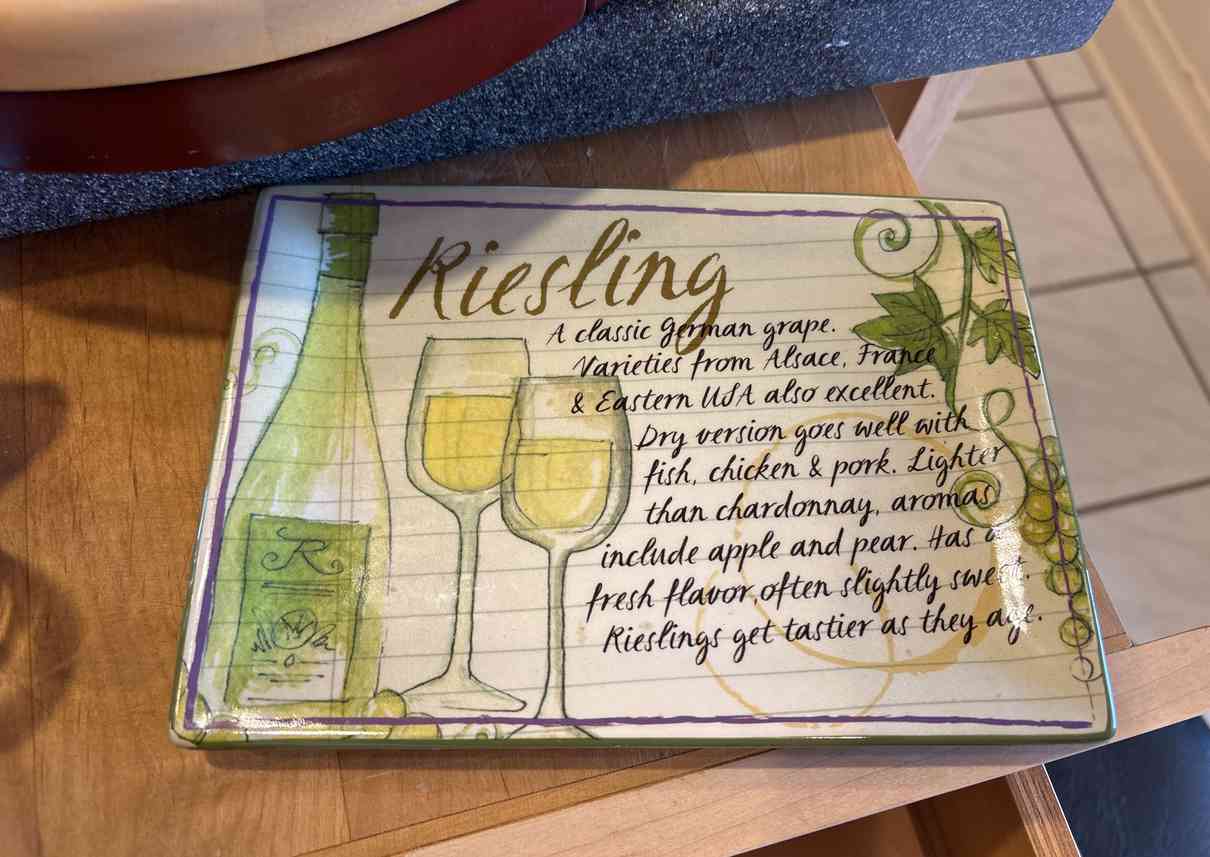 Riesling
A classic German grape.
Varieties from Alsace, France
& Eastern USA also excellent.
Dry version goes well with
fish, chicken & pork. Lighter
than chardonnay, aromas
include apple and pear. Has a
fresh flavor, often slightly sweet.
Rieslings get tastier as they age.
R